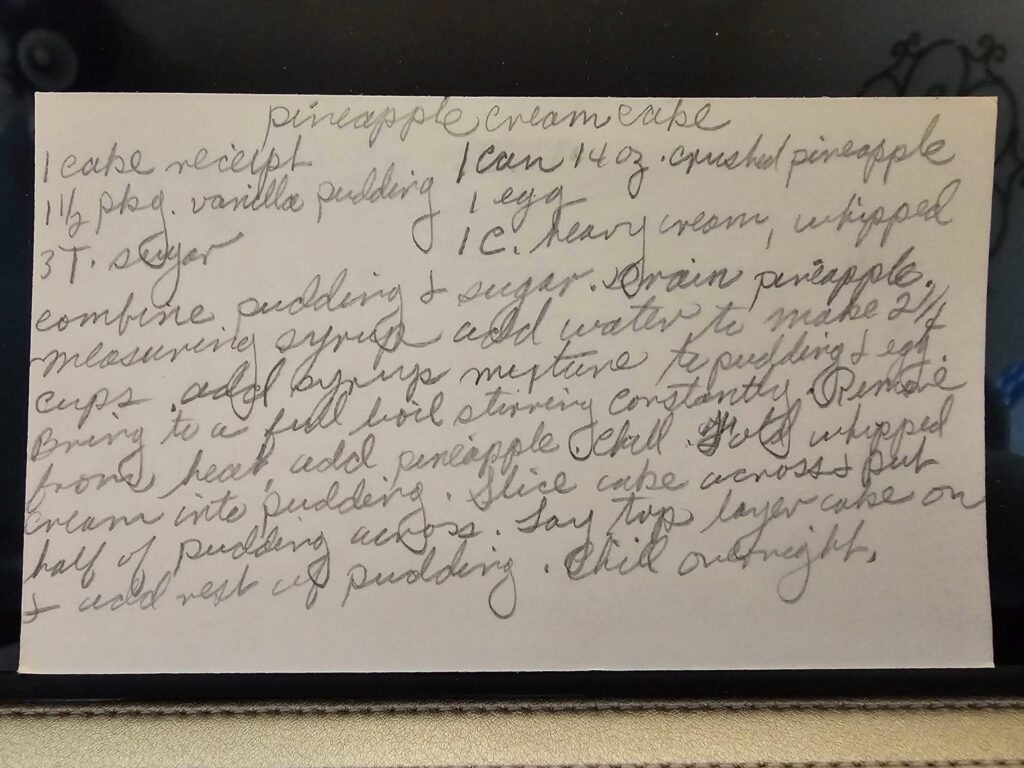 pineapple cream cake
1 cake receipt 1 can 14 oz. crushed pineapple
1 1/2 pkg. vanilla pudding 1 egg
3 T. sugar 1 C. heavy cream, whipped
combine pudding & sugar. Drain pineapple.
measuring syrup add water to make 2 1/4
cups. add syrup mixture to pudding & egg.
Bring to a full boil stirring constantly. Remove
from heat, add pineapple. Chill. Fold whipped
cream into pudding. Slice cake across & put
half of pudding across. Lay top layer cake on
& add rest of pudding. Chill overnight.